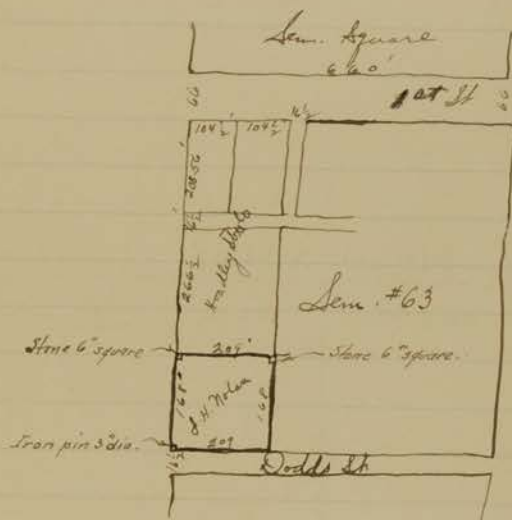 Sem. Square
660'
60
1st St
60
104½'
104½'
16½
208.56
16½
266½
Hadley
Sem. #63
Stone 6" square
209'
Stone 6" square.
168'
J.H. Nolan
168
Iron pin 3" dia.
209
16½
Dodds St